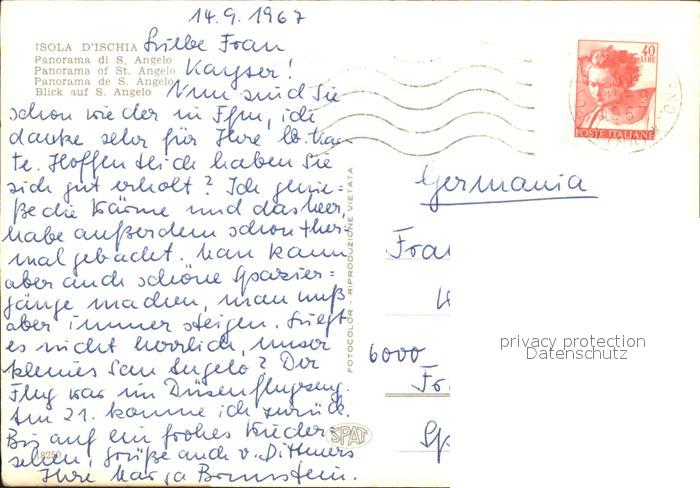 14.9.1967
ISOLA D'ISCHIA
Panorama di S. Angelo
Panorama of St. Angelo
Panorama de S. Angelo
Blick auf S. Angelo
Liebe Frau
Kayser!
Nun sind Sie
schon wieder in Ffm, ich
danke sehr für Ihre lb. Kar-
te. Hoffentlich haben Sie
sich gut erholt? Ich genie=
ße die Wärme und das Meer,
habe außerdem schon ther-
mal gebadet. Man kann
aber auch schöne Spazier=
gänge machen, man muß
aber immer steigen. Liegt
es nicht herrlich, unser
kleines San Angelo? Der
Flug war im Düsenflugzeug.
Am 21. komme ich zurück.
Bis auf ein frohes Wieder-
sehen, Grüße auch v. Dittmers
Ihre Brunnstein.
18250
FOTOCOLOR - RIPRODUZIONE VIETATA
SPAT
40
LIRE
POSTE ITALIANE
Germania
Fra
6000
Fr
Sp
privacy protection
Datenschutz